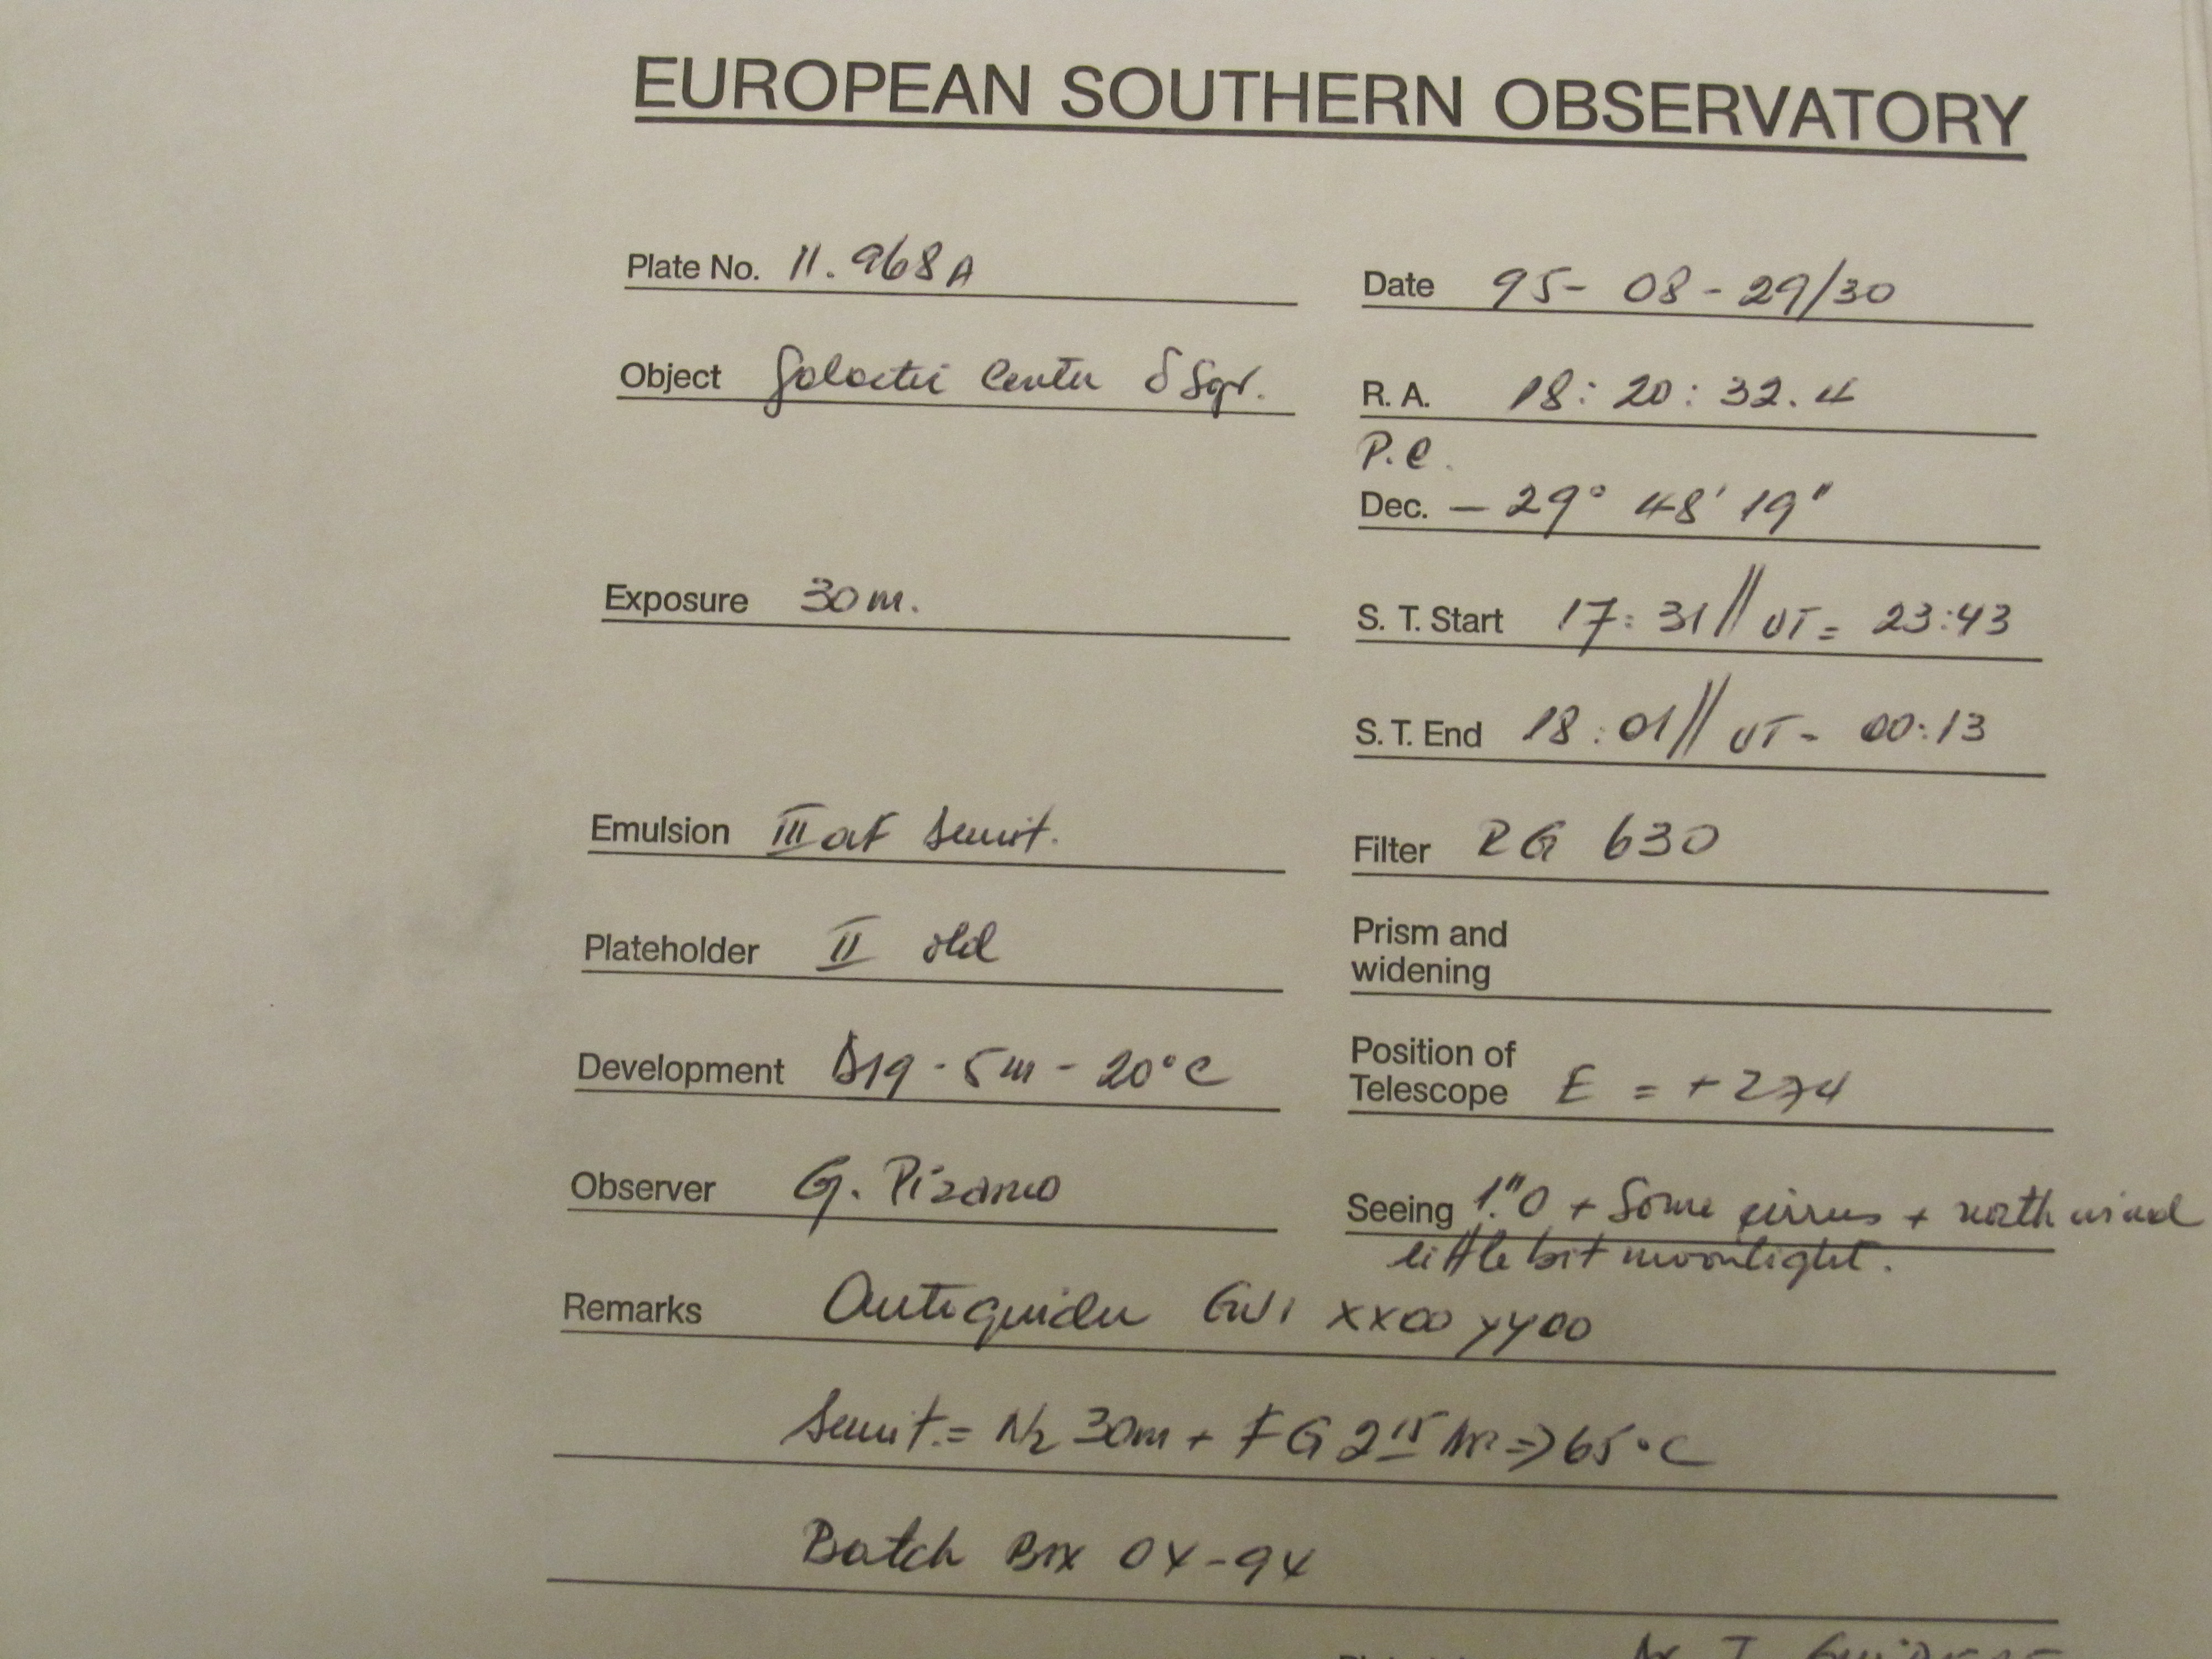 EUROPEAN SOUTHERN OBSERVATORY
Plate No. 11.968A
Date 95-08-29/30
Object Galactic Center δ Sgr.
R. A. 18:20:32.4
P.e.
Dec. -29° 48' 19"
Exposure 30m.
S. T. Start 17:31// UT = 23:43
S. T. End 18:01// UT - 00:13
Emulsion IIIaF Sensit.
Filter RG 630
Plateholder II old
Prism and
widening
Development D19 - 5m - 20°C
Position of
Telescope E = +274
Observer G. Pizarro
Seeing 1."0 + Some cirrus + north wind
little bit moonlight.
Remarks Autoguider GW1 XX00 YY00
Sensit. = N2 30m + FG 2 15 => 65°C
Batch Box 04-94